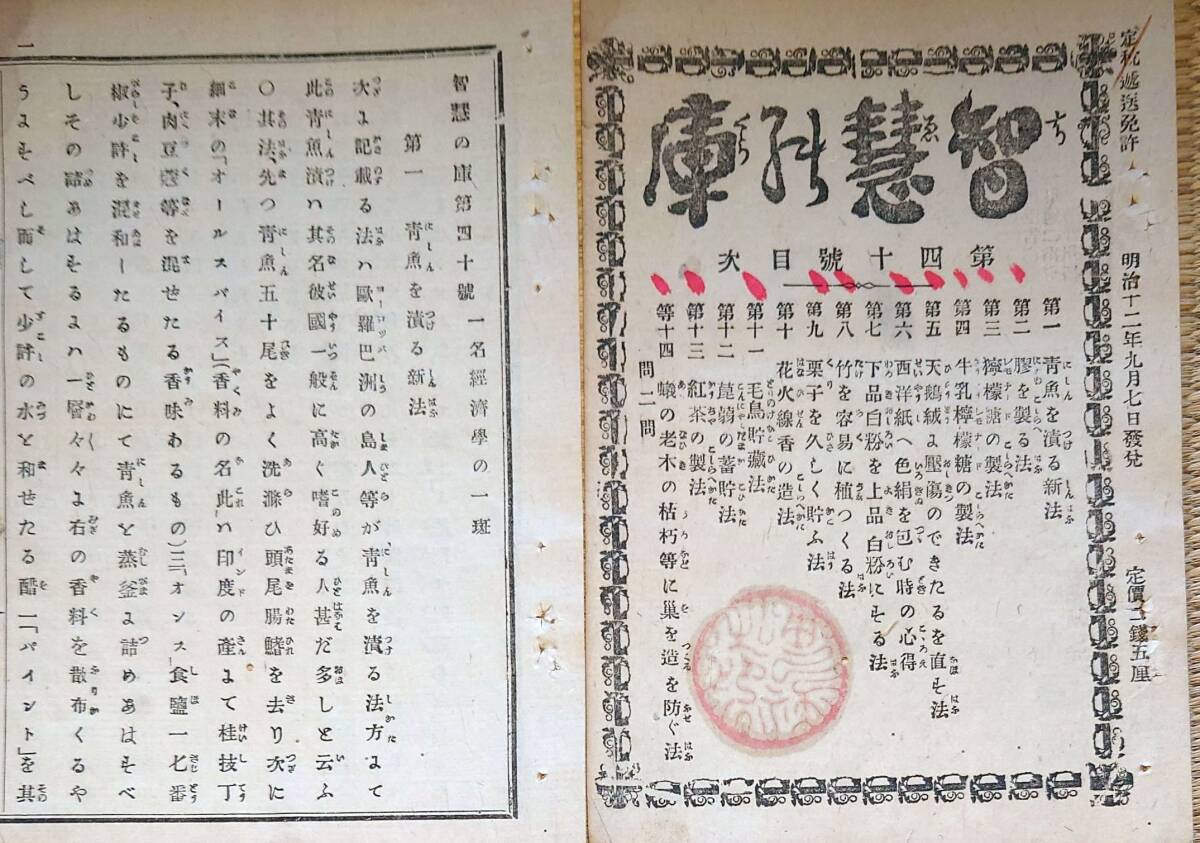 定稅遞送免許
明治十二年九月七日發兌
定價二錢五厘
智慧の庫
第四十號目次
第一 靑魚を漬る新法
第二 膠を製る法
第三 檸檬糖の製法
第四 牛乳檸檬糖の製法
第五 天鵝絨よ壓瘍のできたるを直す法
第六 西洋紙へ色絹を包む時の心得
第七 下品白粉を上品白粉にする法
第八 竹を容易に植つくる法
第九 栗子を久しく貯ふ法
第十 花火線香の造法
第十一 毛鳥貯藏法
第十二 菎蒻の蓄貯法
第十三 紅茶の製法
第十四 蟻の老木の枯朽等に巢を造を防ぐ法
問二問
智慧の庫第四十號 一名經濟學の一斑
第一 靑魚を漬る新法
次よ記載る法ハ歐羅巴洲の島人等が靑魚を漬る法方よて
此靑魚漬ハ其名彼國一般に高く嗜好る人甚だ多しと云ふ
〇其法、先つ靑魚五十尾をよく洗滌ひ頭尾腸鰭を去り次に
細末の「オールスパイス」(香料の名此ハ印度の產よて桂技丁
子、肉豆蔲等を混せたる香味あるもの)三「オンス」食鹽一匕番
椒少許を混和したるものにて靑魚と蒸釜よ詰めあはすべ
しその詰あはするよハ一層々々よ右の香料を散布くるや
うよすべし而して少許の水と和せたる醋一「パイント」を其
一